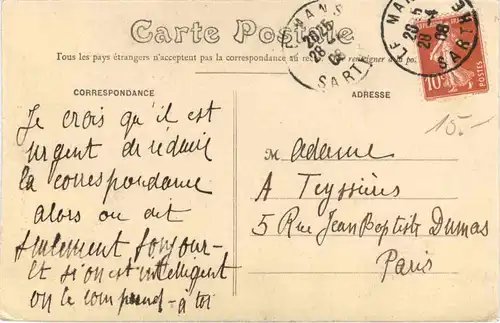 Carte Postale
Tous les pays étrangers n'acceptent pas la correspondance au
CORRESPONDANCE
ADRESSE
LE MANS
20 25
28 -4
08
SARTHE
LE MANS
20 25
28 -4
08
SARTHE
10
POSTES
15.-
Je crois qu'il est
urgent de réduire
la correspondance
alors on dit
seulement bonjour -
et si on est intelligent
on le comprend - à toi
Madame
A Teyssières
5 Rue Jean Baptiste Dumas
Paris